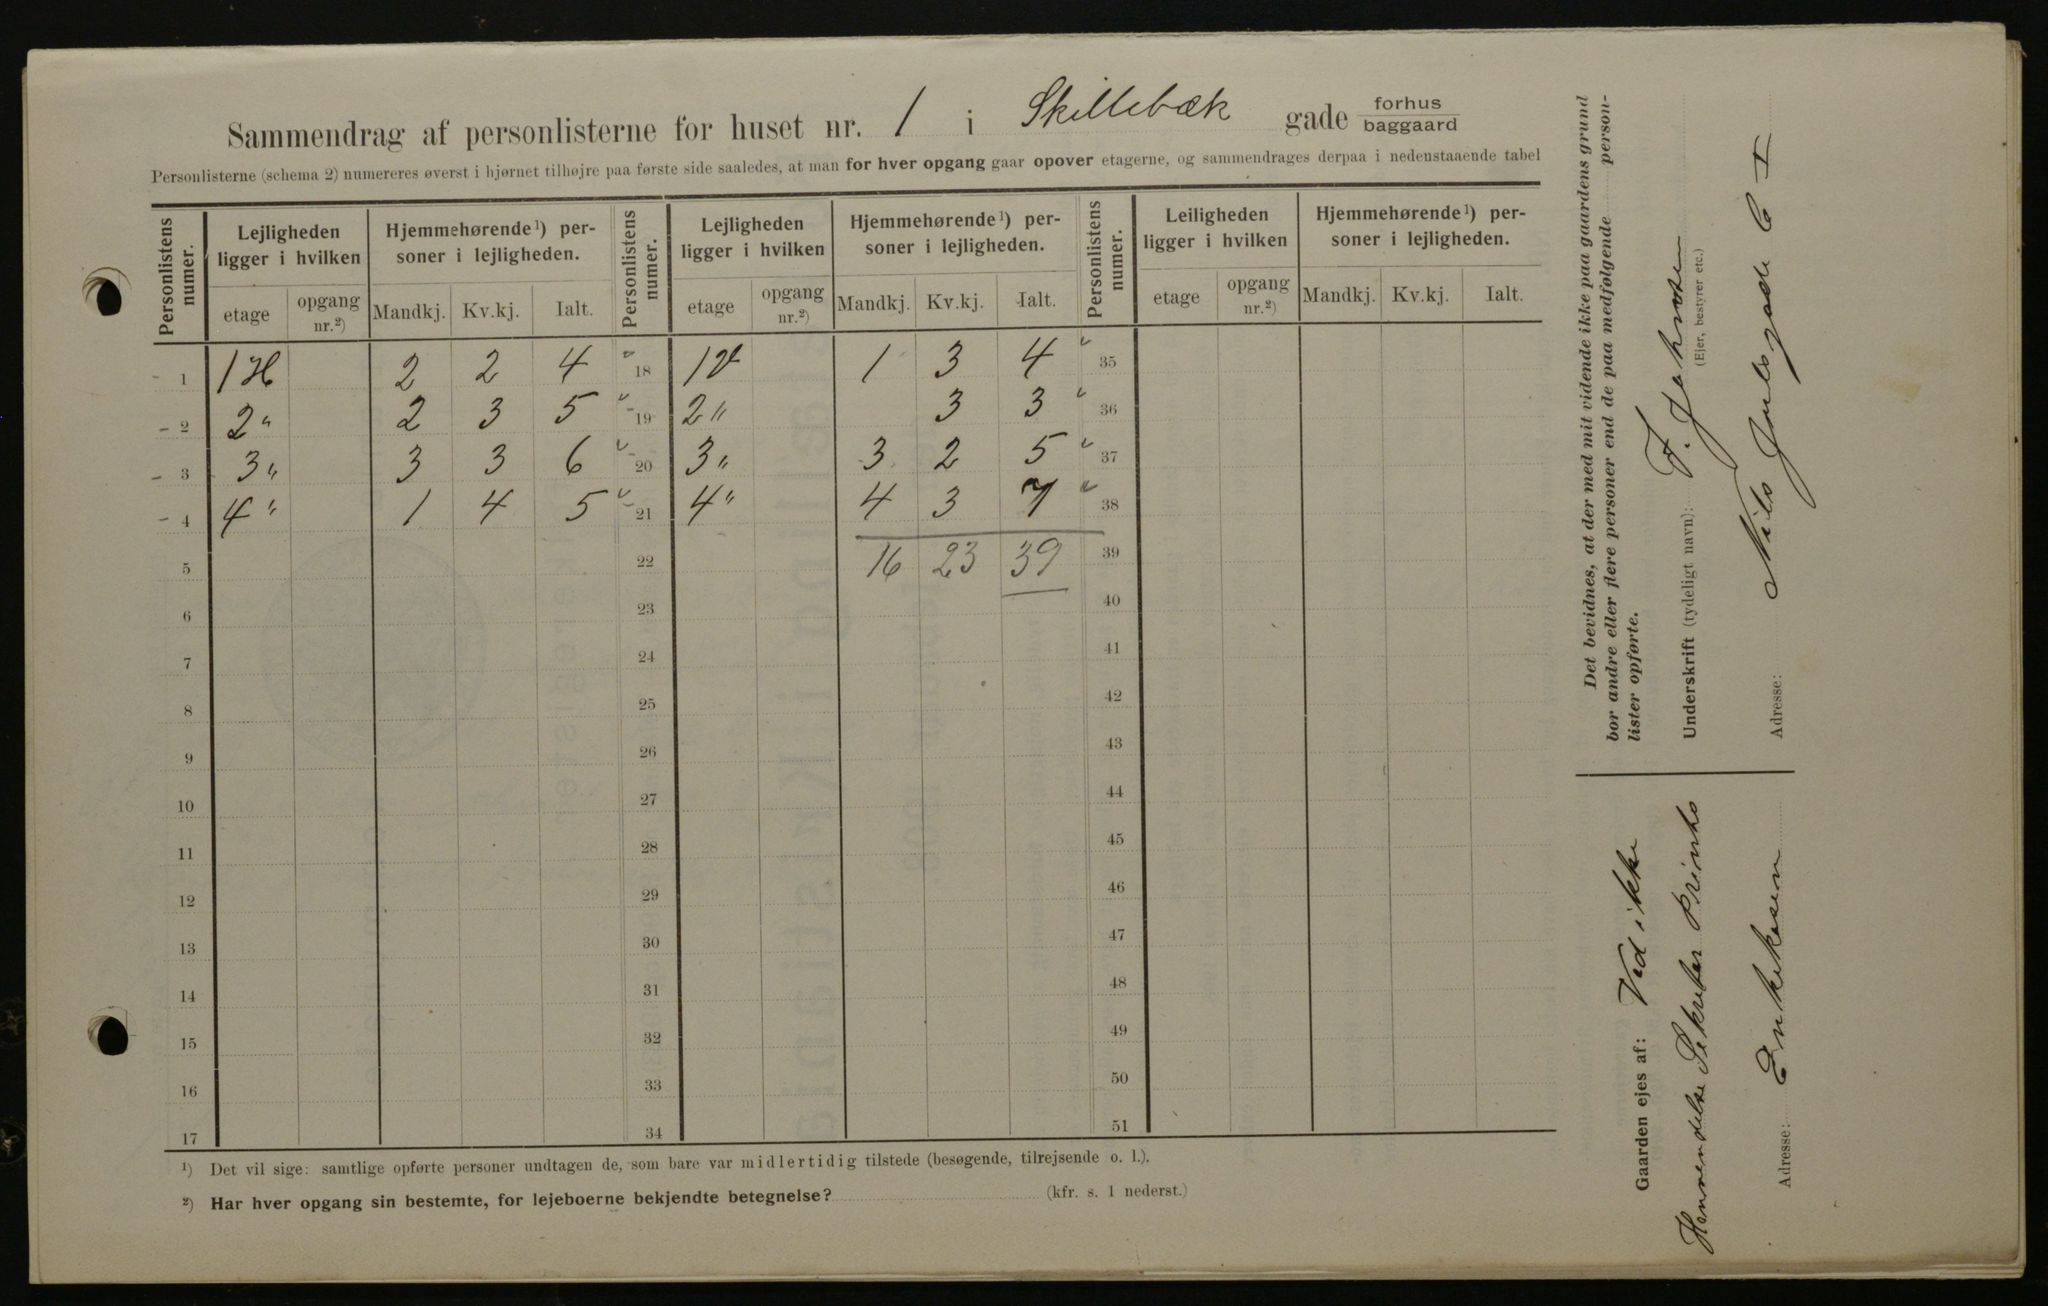 Sammendrag af personlisterne for huset nr. 1 i Skillebæk gade forhus baggaard
Personlisterne (schema 2) numereres øverst i hjørnet tilhøjre paa første side saaledes, at man for hver opgang gaar opover etagerne, og sammendrages derpaa i nedenstaaende tabel
Personlistens numer. Lejligheden ligger i hvilken Hjemmehørende¹) personer i lejligheden. Personlistens numer. Lejligheden ligger i hvilken Hjemmehørende¹) personer i lejligheden. Personlistens numer. Leiligheden ligger i hvilken Hjemmehørende¹) personer i lejligheden.
etage opgang nr.²) Mandkj. Kv.kj. Ialt. etage opgang nr.²) Mandkj. Kv.kj. Ialt. etage opgang nr.²) Mandkj. Kv.kj. Ialt.
1 1 H 2 2 4 18 1 V 1 3 4 35
2 2 " 2 3 5 19 2 " 3 3 36
3 3 " 3 3 6 20 3 " 3 2 5 37
4 4 " 1 4 5 21 4 " 4 3 7 38
5 22 16 23 39 39
6 23 40
7 24 41
8 25 42
9 26 43
10 27 44
11 28 45
12 29 46
13 30 47
14 31 48
15 32 49
16 33 50
17 34 51
¹) Det vil sige: samtlige opførte personer undtagen de, som bare var midlertidig tilstede (besøgende, tilrejsende o. l.).
²) Har hver opgang sin bestemte, for lejeboerne bekjendte betegnelse? (kfr. s. 1 nederst.)
Det bevidnes, at der med mit vidende ikke paa gaardens grund
bor andre eller flere personer end de paa medfølgende person-
lister opførte.
Underskrift (tydeligt navn): F. Johnsen
(Ejer, bestyrer etc.)
Adresse: Nils Juelsgade 6 I
Gaarden ejes af: Ved ikke
Henvendelse Sekretær
Adresse: